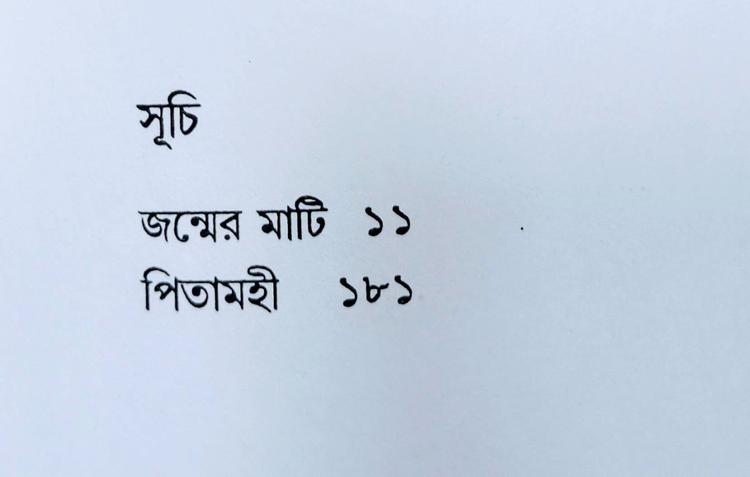 সূচি
জন্মের মাটি ১১
পিতামহী ১৮১